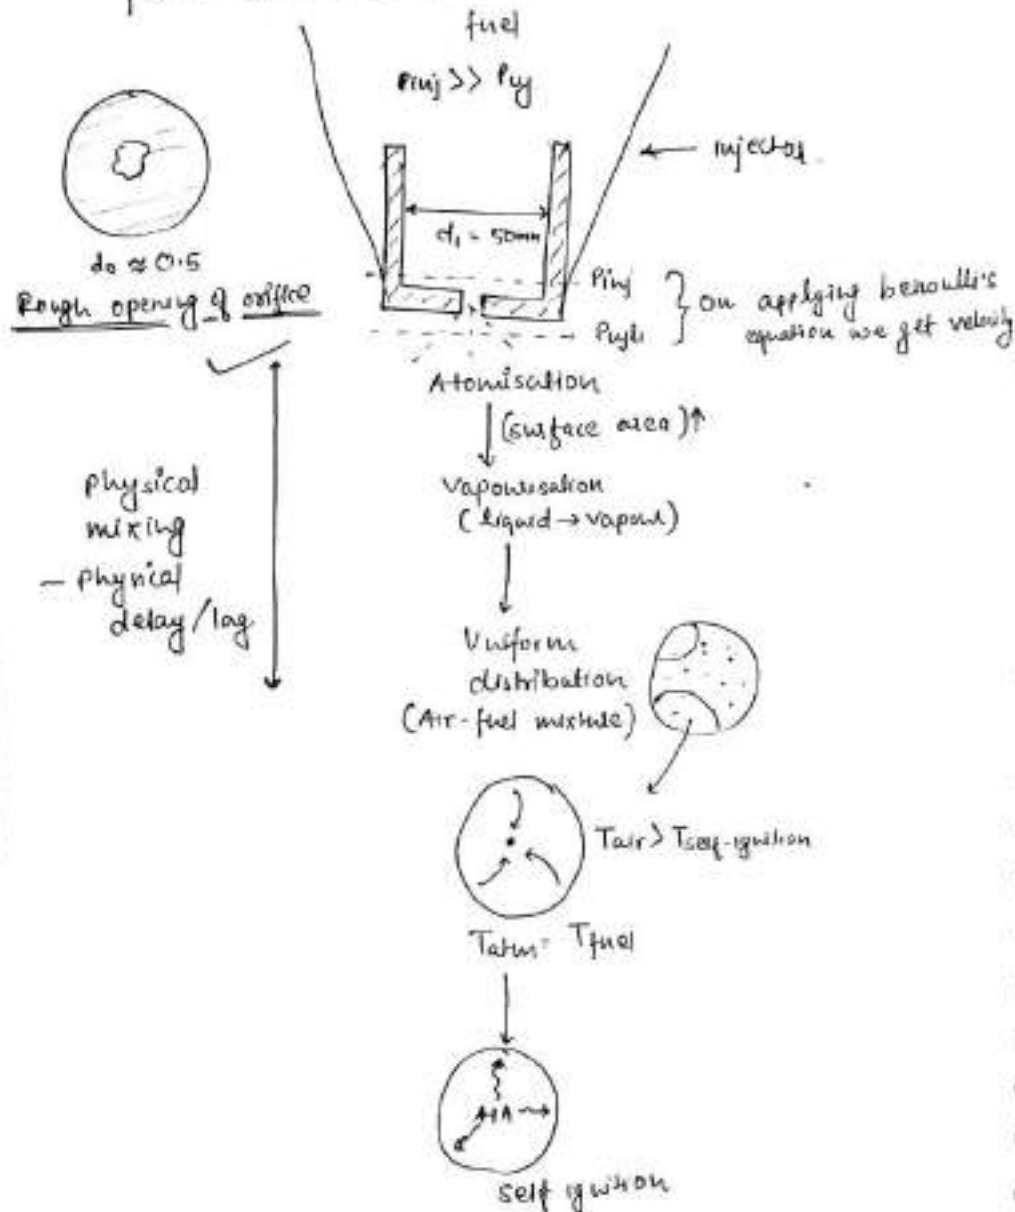 fuel
Pinj >> Pcyl
injector
d1 = 50mm
do ≈ 0.5
Rough opening of orifice
Pinj
Pcyl
on applying benoulli's
equation we get velocity
Atomisation
(surface area)↑
Vapourisation
(liquid → vapour)
physical
mixing
- physical
delay/lag
Uniform
distribution
(Air-fuel mixture)
Tair > Tself-ignition
Tatm = Tfuel
self ignition